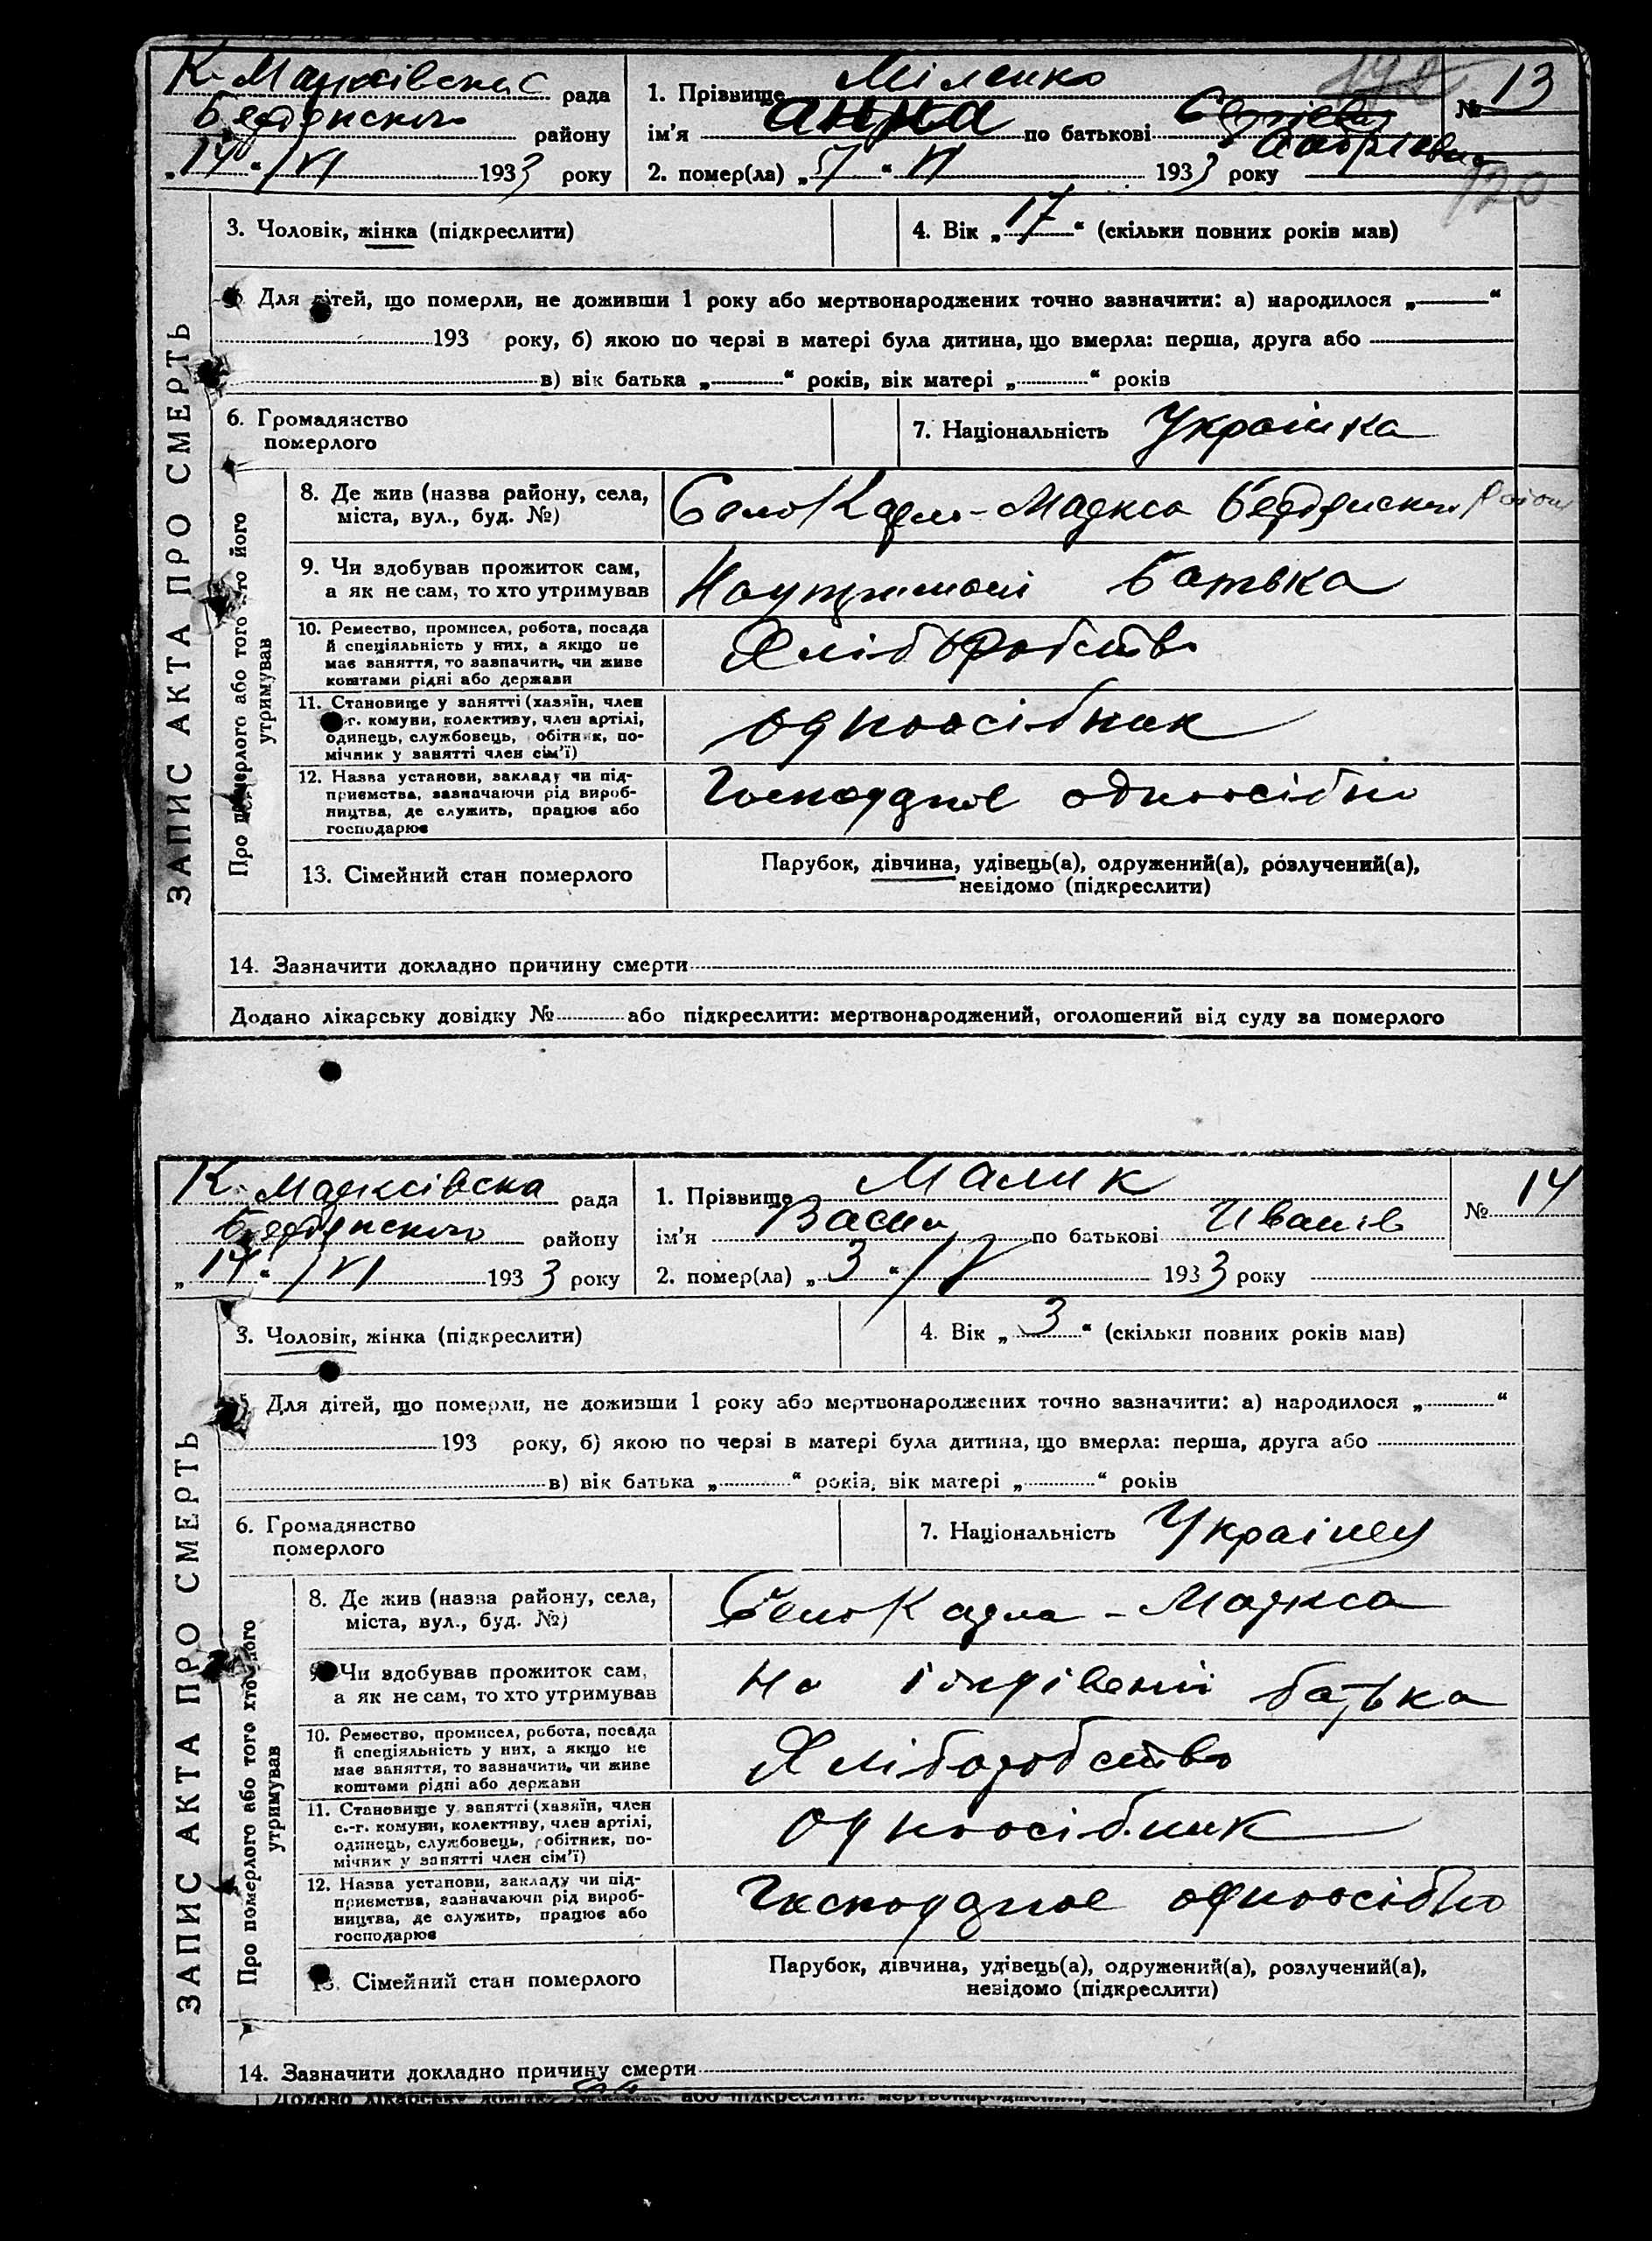 К. Марксівська рада
Бердянського району
„14“ VI 1933 року
1. Прізвище Міленко
ім'я Анна по батькові
2. помер(ла) „5“ VI 1933 року
№ 13
120
3. Чоловік, жінка (підкреслити)
4. Вік „17“ (скільки повних років мав)
Для дітей, що померли, не доживши 1 року або мертвонароджених точно зазначити: а) народилося „ “
193 року, б) якою по черзі в матері була дитина, що вмерла: перша, друга або
в) вік батька „ “ років, вік матері „ “ років
6. Громадянство
померлого
7. Національність Українка
8. Де жив (назва району, села,
міста, вул., буд. №)
Село Карло-Маркса Бердянськ. район
9. Чи здобував прожиток сам,
а як не сам, то хто утримував
На утриманні батька
10. Ремество, промисел, робота, посада
й спеціяльність у них, а якщо не
має заняття, то зазначити, чи живе
коштами рідні або держави
Хліборобство
11. Становище у занятті (хазяїн, член
с.-г. комуни, колективу, член артілі,
одинець, службовець, робітник, по-
мічник у занятті член сім'ї)
одноосібник
12. Назва установи, закладу чи під-
приємства, зазначаючи рід вироб-
ництва, де служить, працює або
господарює
Господарює одноосібно
13. Сімейний стан померлого
Парубок, дівчина, удівець(а), одружений(а), розлучений(а),
невідомо (підкреслити)
14. Зазначити докладно причину смерти
Додано лікарську довідку № або підкреслити: мертвонароджений, оголошений від суду за померлого
ЗАПИС АКТА ПРО СМЕРТЬ
Про померлого або того хто його
утримував
К. Марксівська рада
Бердянського району
„14“ VI 1933 року
1. Прізвище Малик
ім'я Васил по батькові Иванів
2. помер(ла) „3“ / V 1933 року
№ 14
3. Чоловік, жінка (підкреслити)
4. Вік „3“ (скільки повних років мав)
5 Для дітей, що померли, не доживши 1 року або мертвонароджених точно зазначити: а) народилося „ “
193 року, б) якою по черзі в матері була дитина, що вмерла: перша, друга або
в) вік батька „ “ років, вік матері „ “ років
6. Громадянство
померлого
7. Національність Українец
8. Де жив (назва району, села,
міста, вул., буд. №)
Село Карла-Маркса
Чи здобував прожиток сам,
а як не сам, то хто утримував
На батька
10. Ремество, промисел, робота, посада
й спеціяльність у них, а якщо не
має заняття, то зазначити, чи живе
коштами рідні або держави
Хліборобство
11. Становище у занятті (хазяїн, член
с.-г. комуни, колективу, член артілі,
одинець, службовець, робітник, по-
мічник у занятті член сім'ї)
Одноосібник
12. Назва установи, закладу чи під-
приємства, зазначаючи рід вироб-
ництва, де служить, працює або
господарює
Господарює одноосібно
13. Сімейний стан померлого
Парубок, дівчина, удівець(а), одружений(а), розлучений(а),
невідомо (підкреслити)
14. Зазначити докладно причину смерти
ЗАПИС АКТА ПРО СМЕРТЬ
Про померлого або того хто його
утримував